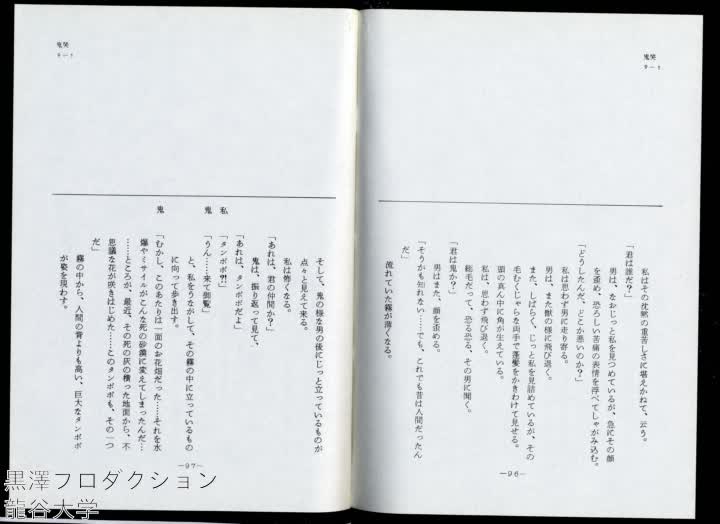 私はその沈黙の重苦しさに堪えかねて、云う。
「君は誰だ？」
男は、なおじっと私を見つめているが、急にその顔
を歪め、恐ろしい苦痛の表情を浮べてしゃがみ込む。
「どうしたんだ、どこか悪いのか？」
私は思わず男に走り寄る。
男は、また獣の様に飛び退く。
また、しばらく、じっと私を見詰めているが、その
毛むくじゃらな両手で蓬髪をかきわけて見せる。
頭の真ん中に角が生えている。
私は、思わず飛び退く。
総毛だって、恐る恐る、その男に聞く。
「君は鬼か？」
男はまた、顔を歪める。
「そうかも知れない……でも、これでも昔は人間だったん
だ」
流れていた霧が薄くなる。
—96—
そして、鬼の様な男の後にじっと立っているものが
点々と見えて来る。
私は怖くなる。
「あれは、君の仲間か？」
鬼は、振り返って見て、
「あれは、タンポポだよ」
私「タンポポ?!」
鬼「うん……来て御覧」
と、私をうながして、その霧の中に立っているもの
に向って歩き出す。
鬼「むかし、このあたりは一面のお花畑だった……それを水
爆やミサイルがこんな死の砂漠に変えてしまったんだ…
……ところが、最近、その死の灰の積った地面から、不
思議な花が咲きはじめた……このタンポポも、その一つ
だ」
霧の中から、人間の背よりも高い、巨大なタンポポ
が姿を現わす。
—97—
黒澤プロダクション
龍谷大学